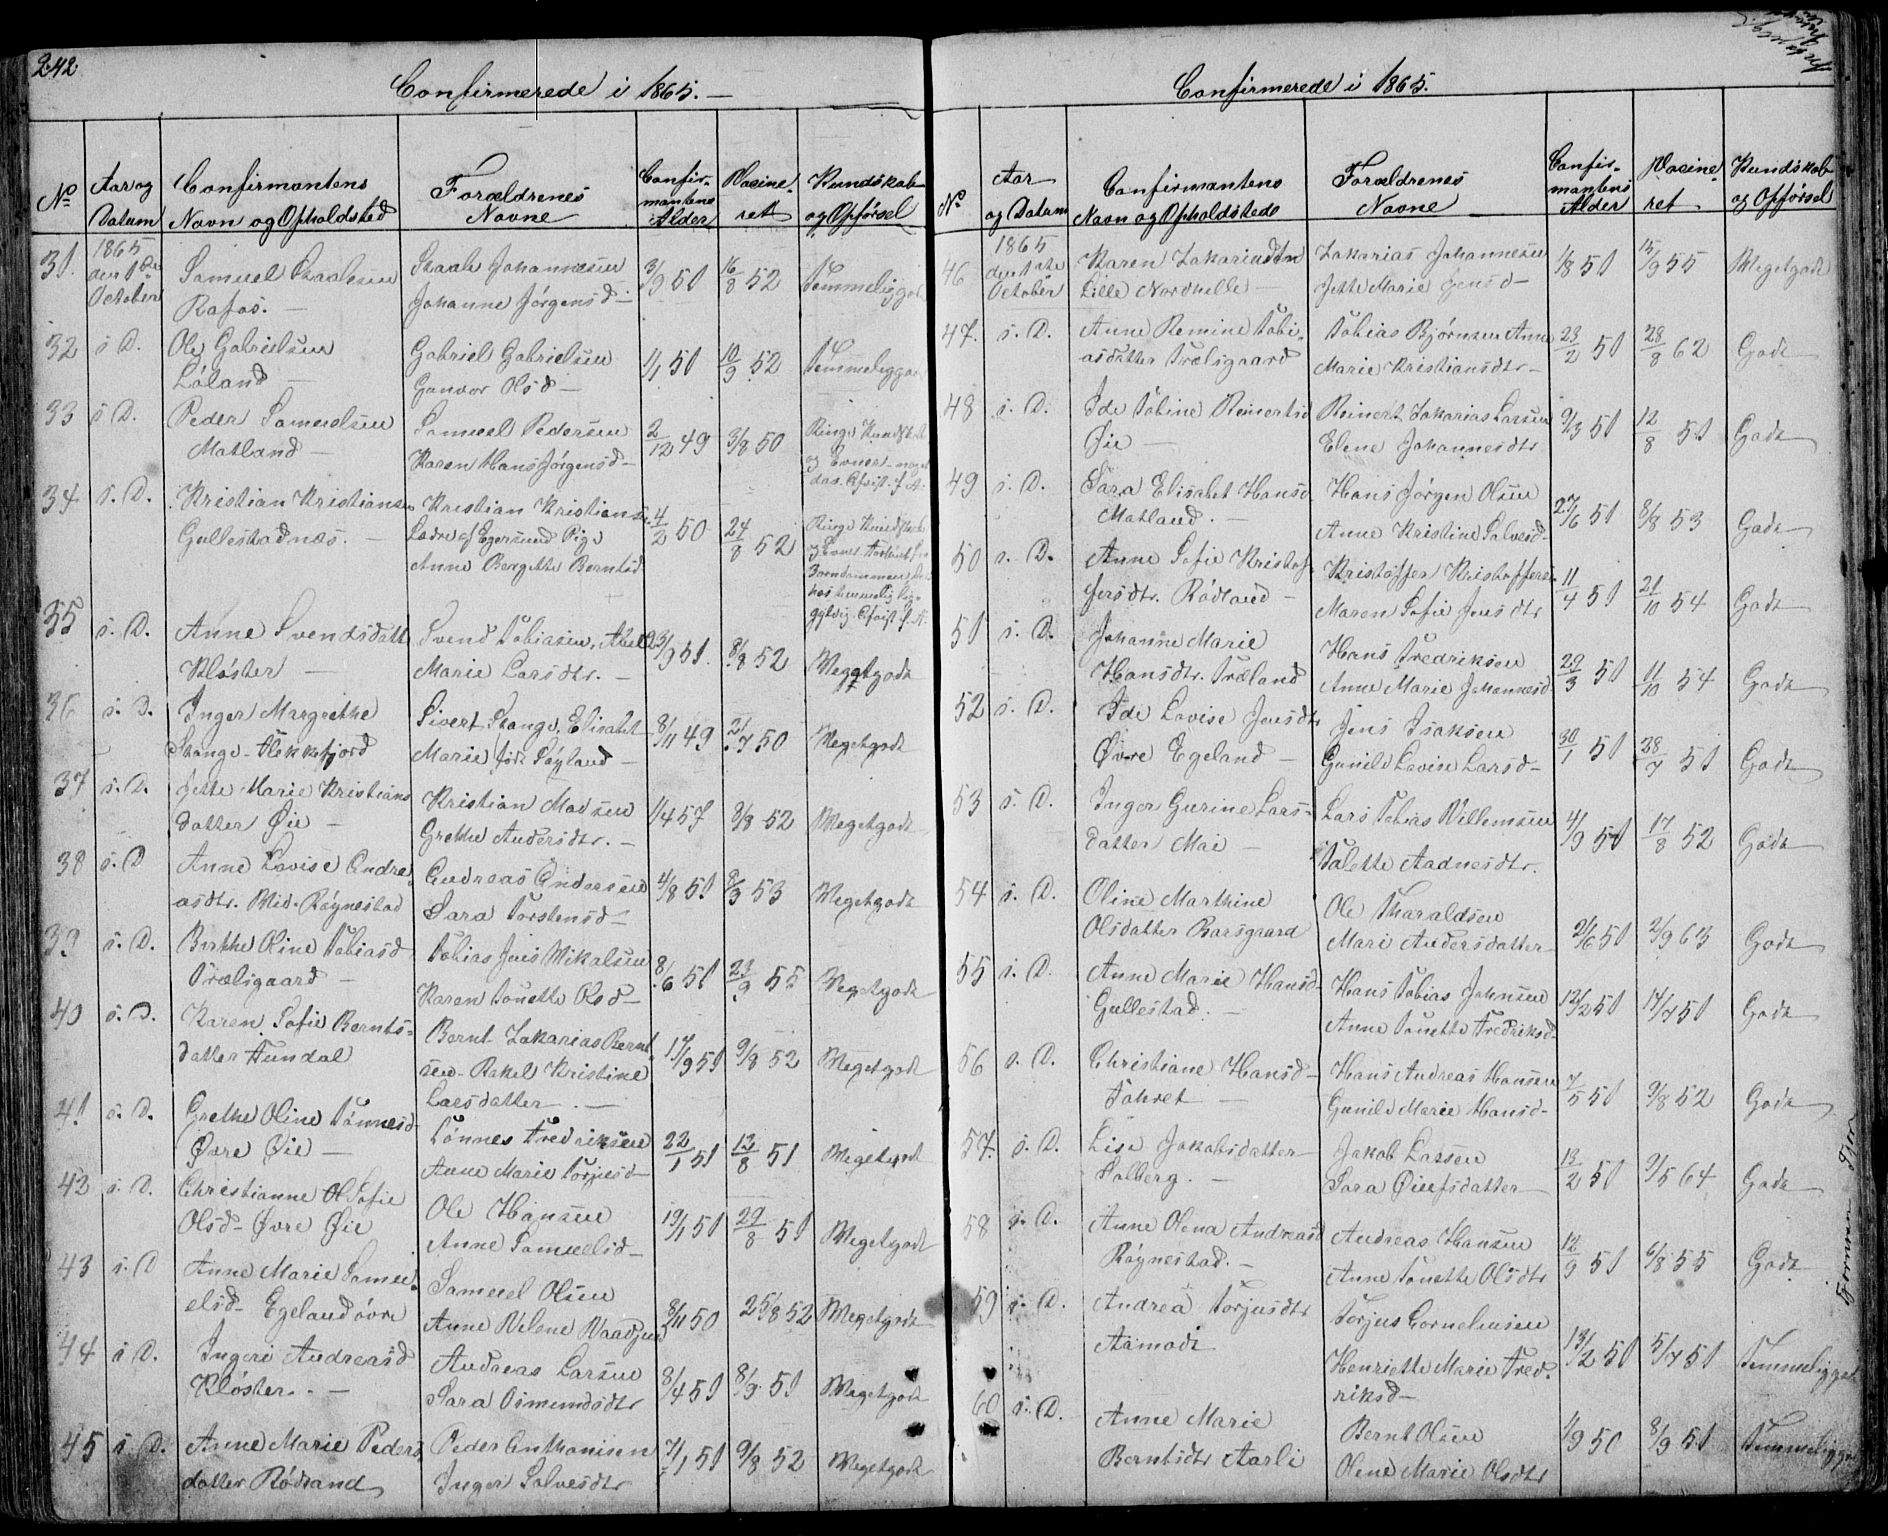 242
Confirmerede i 1865. —
No
Aar og Datum
Confirmantens Navn og Opholdsted
Forældrenes Navne
Confirmantens Alder
Vaccineret
Kundskab og Opførsel
31. 1865 den 1ste October
Samuel Skaalesen
Rafos. —
Skaale Johannesen
Johanne Jørgensd —
3/9 50 16/8 52
32 s. D. Ole Gabrielsen
Løland —
Gabriel Gabrielsen
Gunvor Olsd —
1/1 50 10/9 52
33 s. D. Peder Samuelsen
Matland —
Samuel Pedersen
Karen Hans Jørgensd —
2/12 49 3/8 50
34 s. D. Kristian Kristiansen
Gullestadnæs. —
Kristian Kristiansen
af Egersund Pige
Anne Bergette Berntsd
4/2 50 24/8 52
35 s. D. Anne Svendsdatt
Kløster —
Svend Tobiasen,
Marie Larsdtr. —
23/9 51. 8/8 52 Megetgodt
36 s. D. Inger Margrethe
Stange Flekkefjord
Sivert Stange, Elisabet
Marie født Søyland —
8/11 49 2/7 50 Megetgodt
37 s. D. Jette Marie Kristians
datter Øie —
Kristian Madsen
Grethe Andersdtr. —
1/4 51 8/8 52 Megetgodt
38 s. D. Anne Lovise Andre
asdtr. Mid-Røynestad
Andreas Andersen
Sara Torstensd —
4/8 51 8/9 53 Megetgodt
39 s. D. Berthe Oline Tobiasd
Trælsgaard —
Tobias Jens Mikalsen
Karen Tonette Olsd —
8/6 51 23/9 55 Megetgodt
40 s. D. Karen Sofie Bernts-
datter Fundal
Bernt Zakarias Bernt
sen - Rakel Kristine
Larsdatter. —
17/9 51 9/8 52 Megetgodt
41 s. D. Grethe Oline Tønnesd
Øvre Øie —
Tønnes Fredriksen
Anne Marie Torjusd —
22/1 51 13/8 51 Megetgodt
42 s. D. Christianne Ol Sofie
Olsd - Øvre Øie
Ole Hansen
Anne Samuelsd —
19/1 51 29/8 51 Megetgodt
43 s. D. Anne Marie Samu
elsd - Egeland øvre
Samuel Olsen
Anne Velene
8/11 50 25/8 52 Megetgodt
44 s. D. Ingeri Andreasd
Kløster. —
Andreas Larsen
Sara Osmundsdtr
8/4 51 8/9 51 Megetgodt
45 s. D. Anne Marie Peders
datter Rødsand
Peder Anthonisen
Inger Salvesdtr
7/1 51 9/8 52 Megetgodt
Confirmerede i 1865.
No
Aar og Datum
Confirmantens Navn og Opholdsteds
Forældrenes Navne
Confirmantens Alder
Vaccineret
Kundskab og Opførsel
46 1865 den 1ste October
Karen Zakariadtn
Lille Nordhelle —
Zakarias Johannesen
Jette Marie Jensd —
1/8 51 15/9 55 Megetgodt
47. s. D. Anne Remine Tobi
asdatter Trælsgaard
Tobias Bjørnsen Anne
Marie Kristiansdtr —
23/2 51 28/8 62 Godt
48 s. D. Ide Tobine Reinertsd
Øie —
Reinert Zakarias Larsen
Elene Johannesdtr
9/3 51 12/8 51 Godt
49 s. D. Sara Elisabet Hansd
Matland. —
Hans Jørgen Olsen
Anne Kristine Salvesd —
27/6 51 8/8 53 Godt
50 s. D. Anne Sofie Kristof
fersdtr. Rødland —
Kristoffer Kristoffers
Maren Sofie Jensdtr
11/4 51 21/10 54 Godt
51 s. D. Johanne Marie
Hansdtr. Træland
Hans Fredriksen
Anne Marie Johannesd
29/3 51 11/10 54 Godt
52 s. D. Ide Lovise Jensdtr
Øvre Egeland —
Jens Isaksen
Gunild Lovise Larsd —
30/1 51 28/7 51 Godt
53 s. D. Inger Gurine Lars-
datter Mai —
Lars Tobias Willemsen
Talette Aadnesdtr.
4/9 51 17/8 52 Godt
54 s. D. Oline Marthine
Olsdatter Barsgaard
Ole Tharaldsen
Mari Andersdatter
2/6 51 2/9 63 Godt
55 s. D. Anne Marie Hansd —
Gullestad. —
Hans Tobias Johnsen
Anne Tonette Fredriksd —
12/2 51 14/7 51 Godt
56 s. D. Christiane Hansd —
Tahret —
Hans Andreas Hansen
Gunild Marie Hansd —
7/5 51 9/8 52 Godt
57. s. D. Lise Jakobsdatter
Salberg. —
Jakob Lassen
Sara
13/2 51 9/5 64 Godt
58 s. D. Anne Olena Andreasd
Røynestad. —
Andreas Hansen
Anne Tonette Olsdtr
12/9 51 6/8 55 Godt
59 s. D. Andrea Torjusdtr
Aamodt
Torjus Cornelinsen
Henriette Marie Fred-
riksd —
13/2 51 5/7 51
60 s. D. Anne Marie
Berntsdtr Aarli
Bernt Olsen
Olene Marie Olsdtr
1/9 50 8/9 51